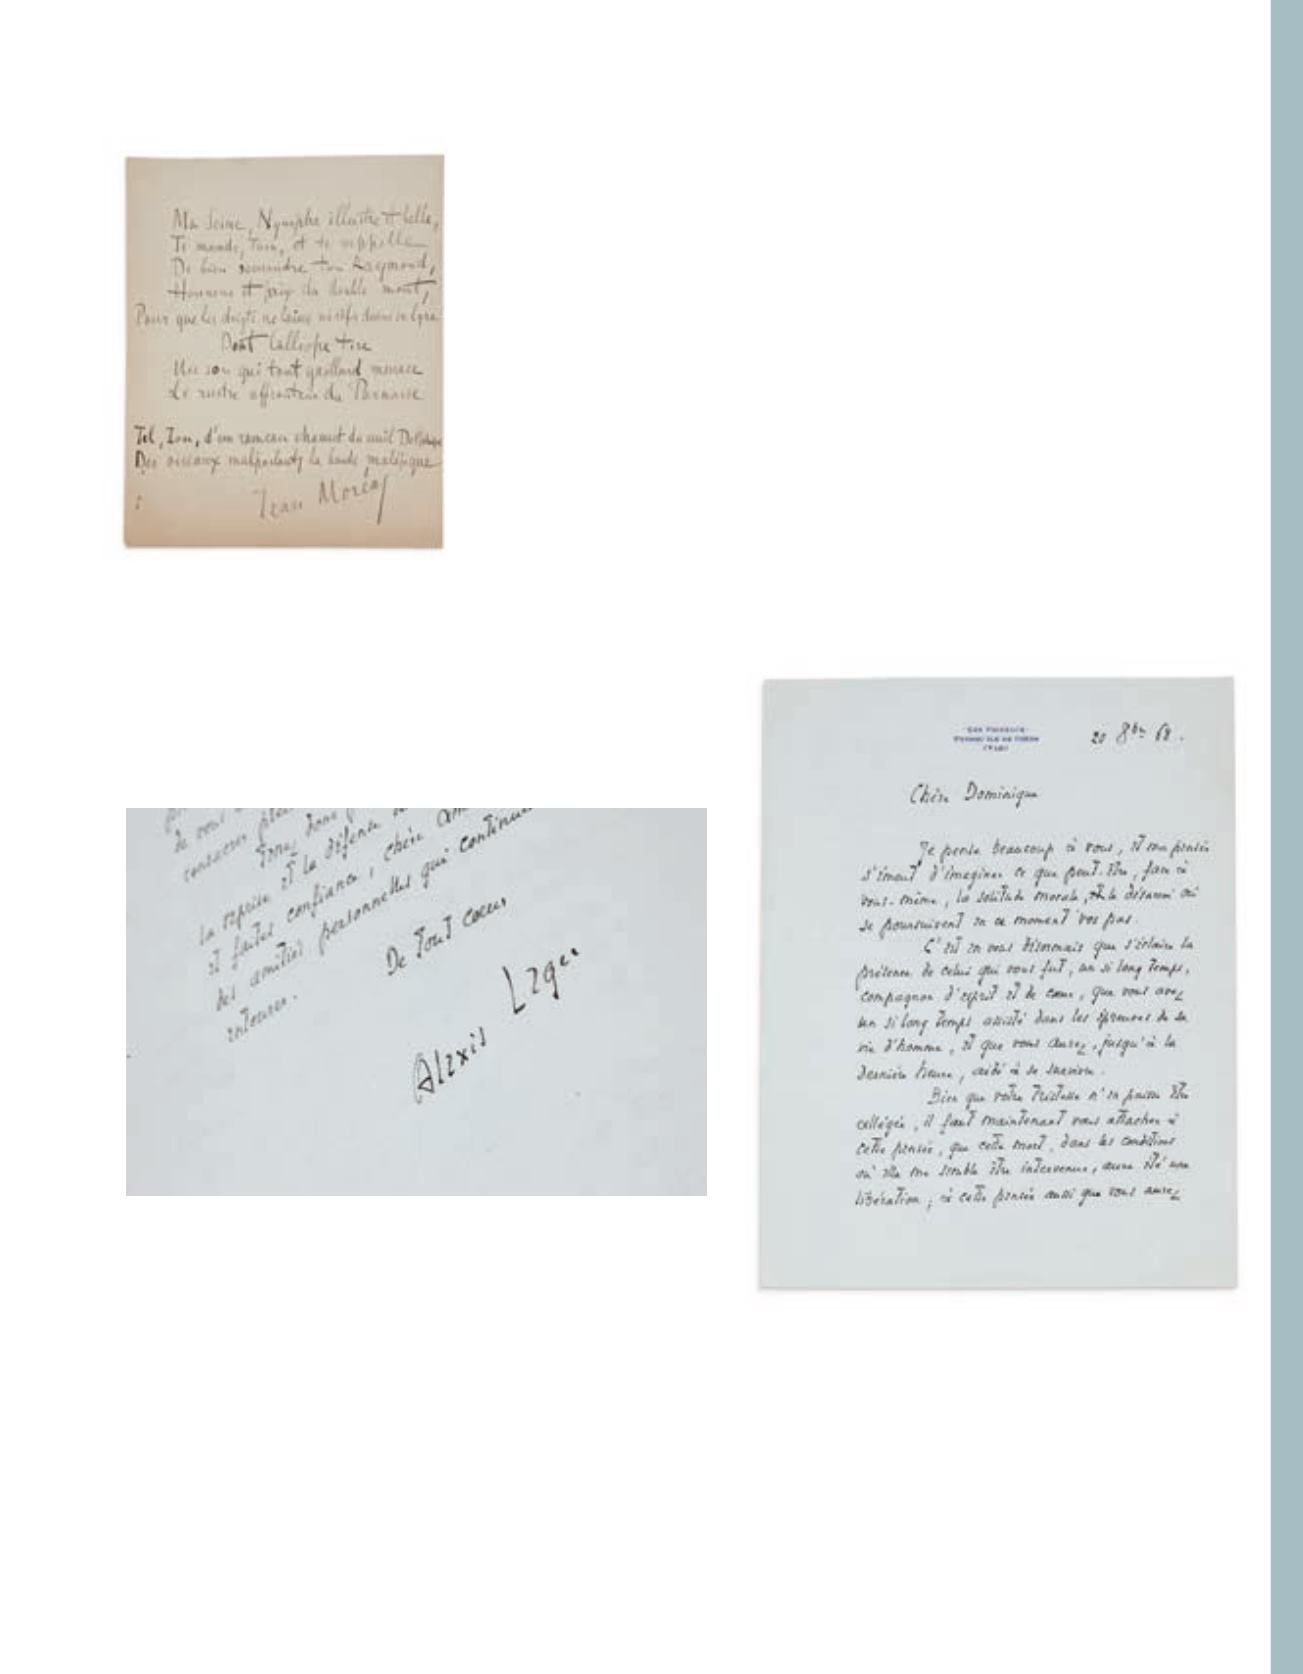 Ma Seine, Nymphe illustre et belle,
Te mande, Ion, et te rappelle
De bien semondre ton Raymond,
Honneur et prix du double mont,
Pour que les doigts ne laisse oisifs dessus sa lyre
Dont Calliope tire
Un son qui tout gaillard menace
Le rustre affronteur du Parnasse
Tel, Ion, d'un rameau chassait du seuil Delphique
Des oiseaux malfaisants la bande
Jean Moréas
de vous
consacrer
donc
la reprise et la défense
et faites confiance, chère
des amitiés personnelles qui continuent
entourer.
De tout cœur
Alexis Leger
20 8bre 68.
Chère Dominique
Je pense beaucoup à vous, et ma pensée
s'émeut d'imaginer ce que peut être, face à
vous-même, la solitude morale, et le désarroi où
se poursuivent en ce moment vos pas.
C'est en vous désormais que s'éclaire la
présence de celui qui vous fut, un si long temps,
compagnon d'esprit et de cœur, que vous avez
un si long temps assisté dans les épreuves de sa
vie d'homme, et que vous aurez, jusqu'à la
dernière heure, aidé à se survivre.
Bien que votre tristesse n'en puisse être
allégée, il faut maintenant vous attacher à
cette pensée, que cette mort, dans les conditions
où elle me semble être intervenue, aura été une
libération ; à cette pensée aussi que vous aurez